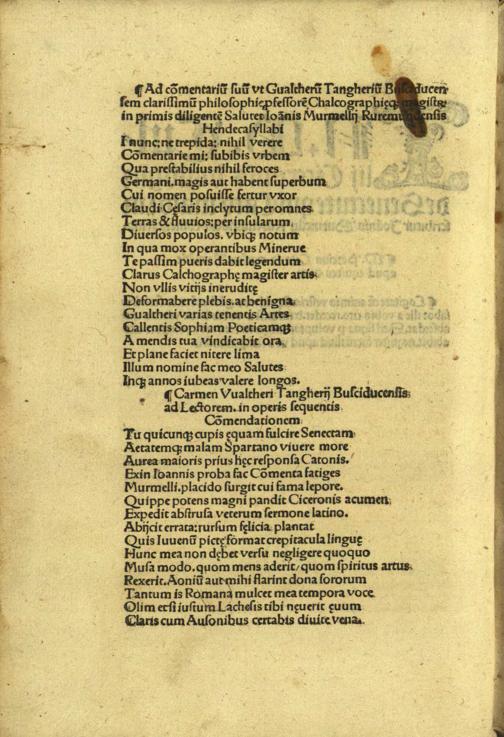 ¶ Ad cōmentariū suū vt Gualtherū Tangheriū Busciducen
sem clarissimū philosophię ꝓfessorē Chalcographieq; magistrū
in primis diligentē Salutet Ioānis Murmellij Ruremundensis
Hendecasyllabi
I nunc: ne trepida: nihil verere
Cōmentarie mi: subibis vrbem
Qua prestabilius nihil feroces
Germani. magis aut habent superbum
Cui nomen posuisse fertur vxor
Claudi Cesaris inclytum per omnes
Terras & fluuios: per insularum
Diuersos populos. vbiq; notum
In qua mox operantibus Minerue
Te passim pueris dabit legendum
Clarus Calchographę magister artis
Non vllis vitijs ineruditę
Deformabere plebis. at benigna
Gualtheri varias tenentis Artes
Callentis Sophiam Poeticamq;
A mendis tua vindicabit ora
Et plane faciet nitere lima
Illum nomine fac meo Salutes
Inq; annos iubeas valere longos.
¶ Carmen Vualtheri Tangherij Busciducensis
ad Lectorem. in operis sequentis
Cōmendationem
Tu quicunq; cupis ęquam fulcire Senectam
Aetatemq; malam Spartano viuere more
Aurea maioris prius hęc responsa Catonis.
Exin Ioannis proba fac Cōmenta fatiges
Murmelli. placido surgit cui fama lepore.
Quippe potens magni pandit Ciceronis acumen
Expedit abstrusa veterum sermone latino.
Abijcit errata: rursum fęlicia plantat
Quis Iuuenū pictę format crepitacula linguę
Hunc mea non dębet versu negligere quoquo
Musa modo. quom mens aderit/ quom spiritus artus
Rexerit. Aoniū aut mihi flarint dona sororum
Tantum is Romana mulcet mea tempora voce
Olim etsi iustum Lachesis tibi nęuerit ęuum
Claris cum Ausonibus certabis diuite vena.